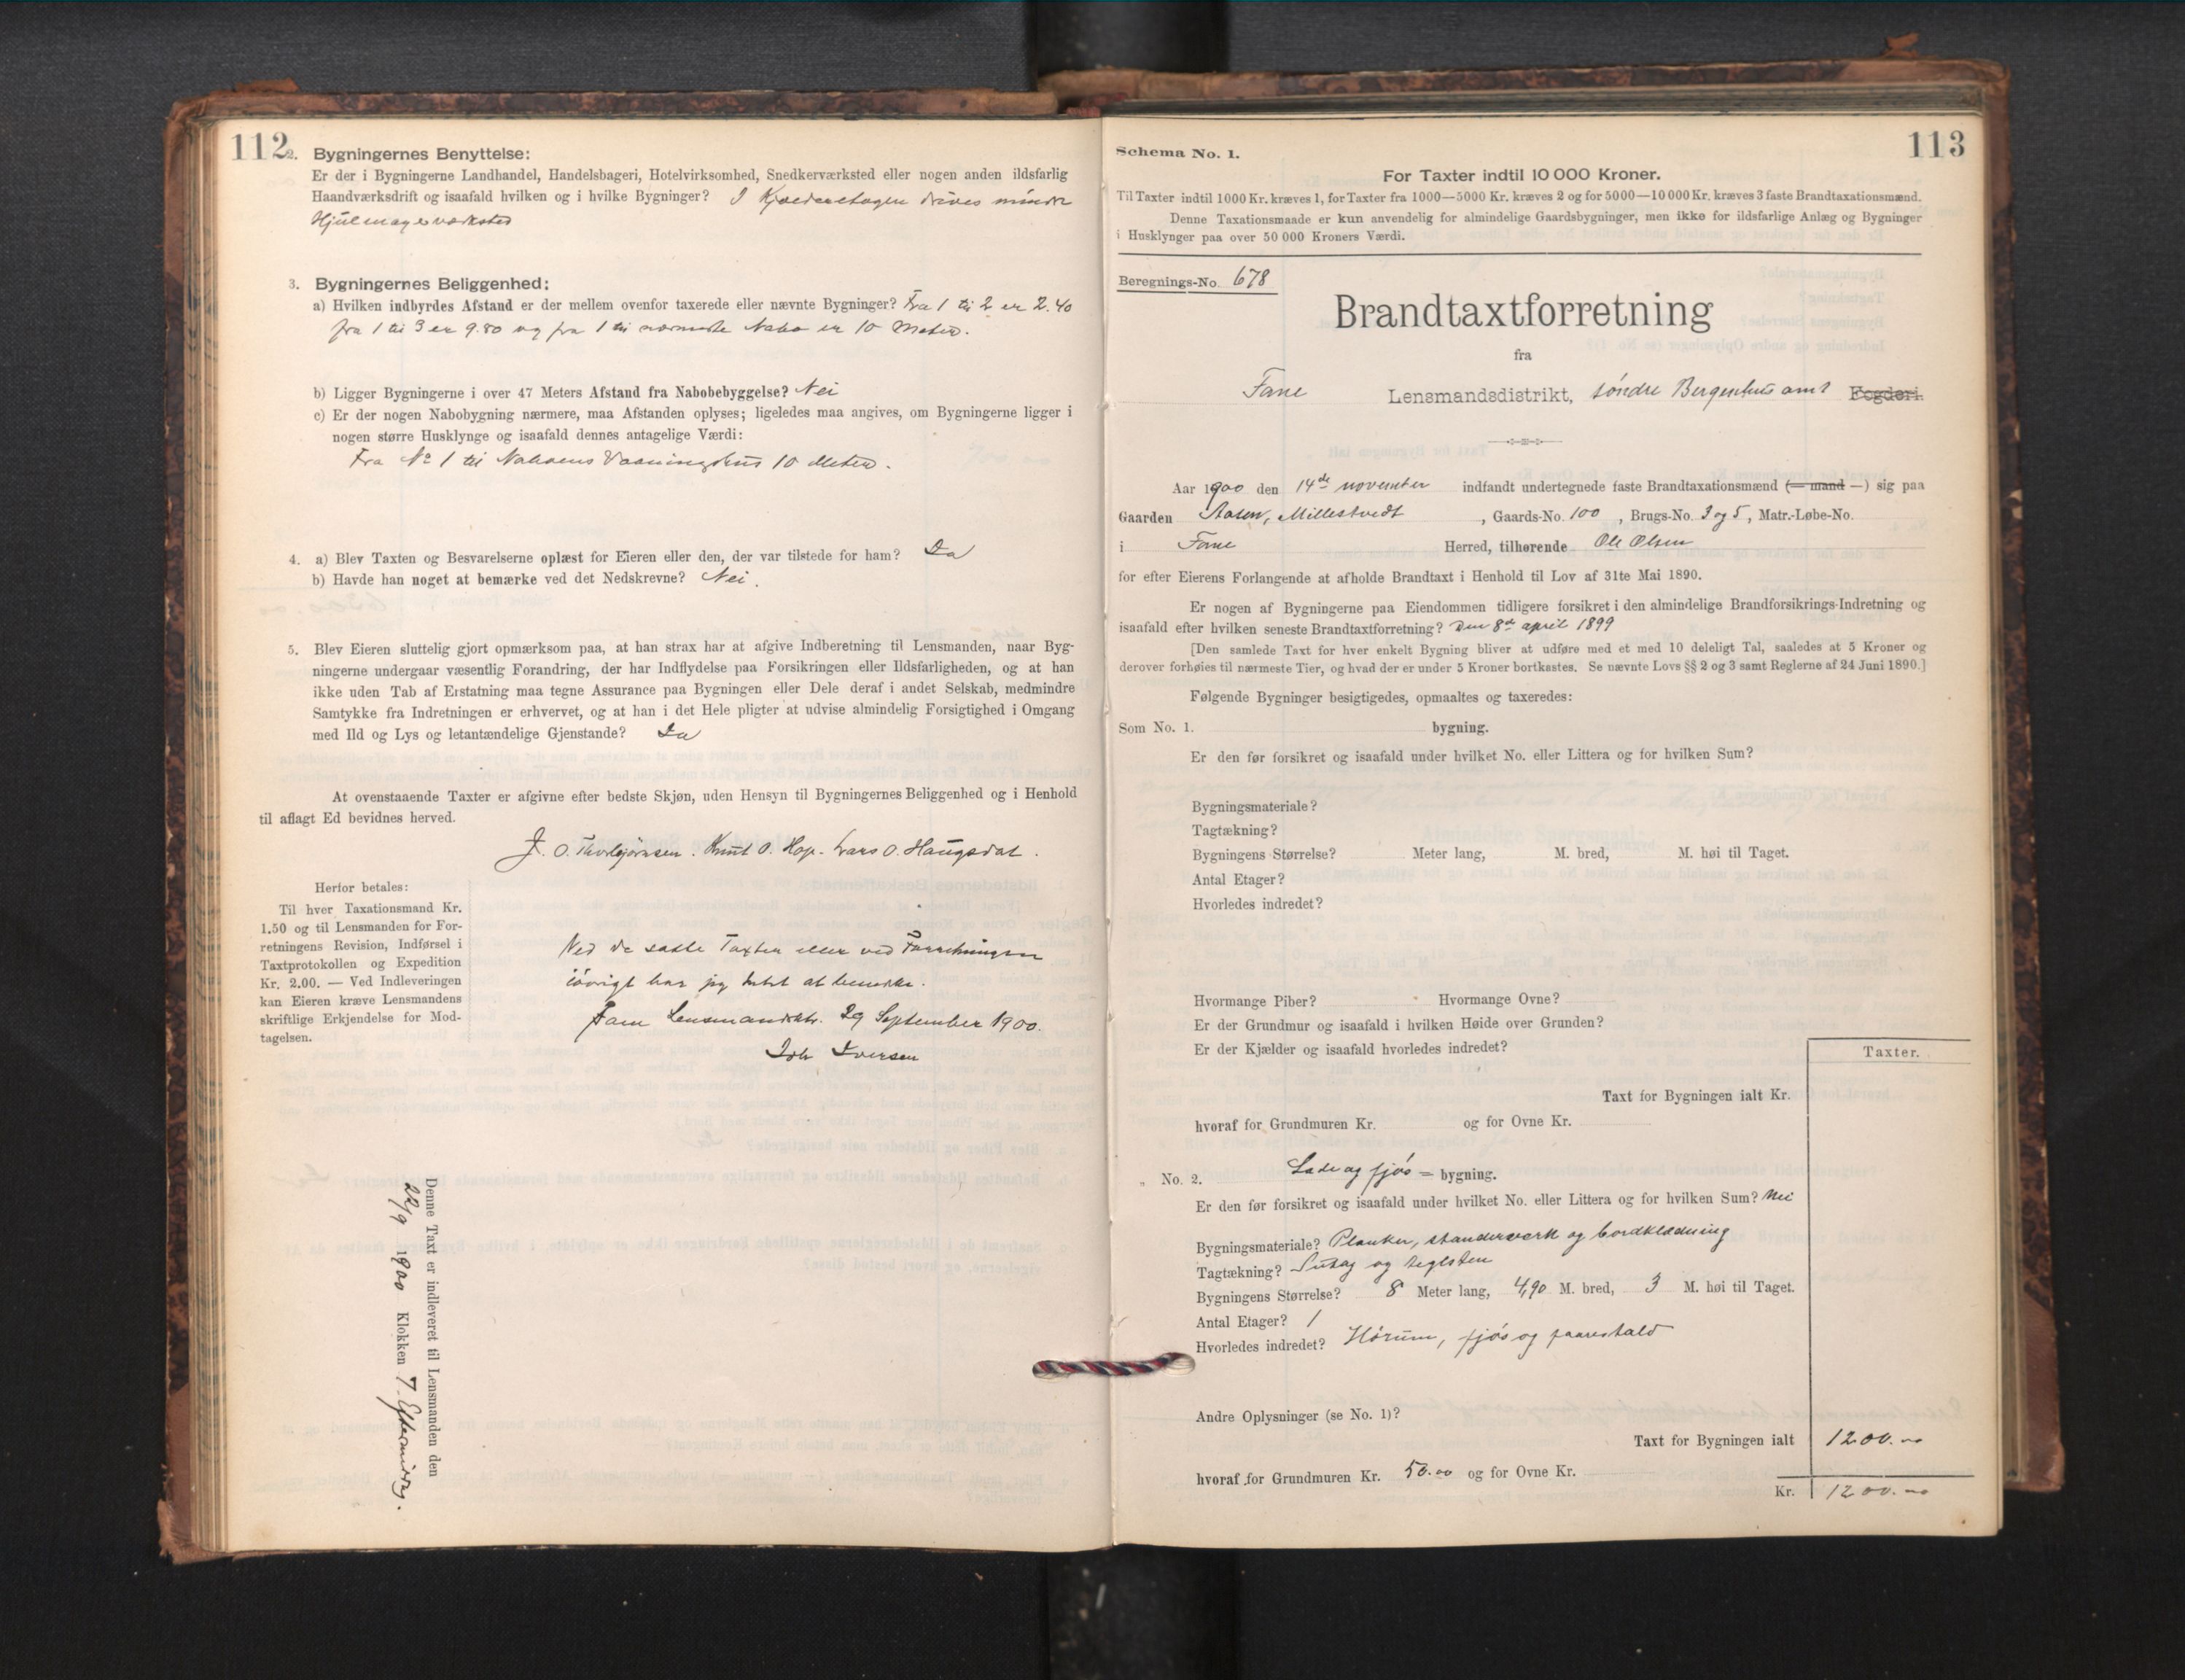 112
2. Bygningernes Benyttelse:
Er der i Bygningerne Landhandel, Handelsbageri, Hotelvirksomhed, Snedkerværksted eller nogen anden ildsfarlig
Haandværksdrift og isaafald hvilken og i hvilke Bygninger? I Kjælderetagen drives mindre
Hjulmagerværksted
3. Bygningernes Beliggenhed:
a) Hvilken indbyrdes Afstand er der mellem ovenfor taxerede eller nævnte Bygninger? Fra 1 til 2 er 2.40
fra 1 til 3 er 9.80 og fra 1 til nærmeste Nabo er 10 Meter.
b) Ligger Bygningerne i over 47 Meters Afstand fra Nabobebyggelse? Nei
c) Er der nogen Nabobygning nærmere, maa Afstanden oplyses; ligeledes maa angives, om Bygningerne ligger i
nogen større Husklynge og isaafald dennes antagelige Værdi:
Fra No 1 til Naboens Vaaningshus 10 Meter.
4. a) Blev Taxten og Besvarelserne oplæst for Eieren eller den, der var tilstede for ham? Ja
b) Havde han noget at bemærke ved det Nedskrevne? Nei.
5. Blev Eieren sluttelig gjort opmærksom paa, at han strax har at afgive Indberetning til Lensmanden, naar Byg-
ningerne undergaar væsentlig Forandring, der har Indflydelse paa Forsikringen eller Ildsfarligheden, og at han
ikke uden Tab af Erstatning maa tegne Assurance paa Bygningen eller Dele deraf i andet Selskab, medmindre
Samtykke fra Indretningen er erhvervet, og at han i det Hele pligter at udvise almindelig Forsigtighed i Omgang
med Ild og Lys og letantændelige Gjenstande? Ja
At ovenstaaende Taxter er afgivne efter bedste Skjøn, uden Hensyn til Bygningernes Beliggenhed og i Henhold
til aflagt Ed bevidnes herved.
J. O. Thorbjørnsen. Knut O. Hop. Lars O. Haugsdal.
Herfor betales:
Til hver Taxationsmand Kr.
1.50 og til Lensmanden for For-
retningens Revision, Indførsel i
Taxtprotokollen og Expedition
Kr. 2.00. — Ved Indleveringen
kan Eieren kræve Lensmandens
skriftlige Erkjendelse for Mod-
tagelsen.
Ved de satte Taxter eller ved Forretningen
iøvrigt har jeg intet at bemærke.
Fane Lensmandsktr. 29 September 1900.
Joh Iversen
Denne Taxt er indleveret til Lensmanden den
22/9 1900 Klokken 7 Eftermiddag.
113
Schema No. 1.
For Taxter indtil 10 000 Kroner.
Til Taxter indtil 1000 Kr. kræves 1, for Taxter fra 1000—5000 Kr. kræves 2 og for 5000—10 000 Kr. kræves 3 faste Brandtaxationsmænd.
Denne Taxationsmaade er kun anvendelig for almindelige Gaardsbygninger, men ikke for ildsfarlige Anlæg og Bygninger
i Husklynger paa over 50 000 Kroners Værdi.
Beregnings-No. 678
Brandtaxtforretning
fra
Fane Lensmandsdistrikt, søndre Bergenhus amt Fogderi.
Aar 1900 den 14de november indfandt undertegnede faste Brandtaxationsmænd (— mand —) sig paa
Gaarden Aasen, Millestvedt, Gaards-No. 100, Brugs-No. 3 og 5, Matr.-Løbe-No.
i Fane Herred, tilhørende Ole Olsen
for efter Eierens Forlangende at afholde Brandtaxt i Henhold til Lov af 31te Mai 1890.
Er nogen af Bygningerne paa Eiendommen tidligere forsikret i den almindelige Brandforsikrings-Indretning og
isaafald efter hvilken seneste Brandtaxtforretning? Den 8de april 1899
[Den samlede Taxt for hver enkelt Bygning bliver at udføre med et med 10 deleligt Tal, saaledes at 5 Kroner og
derover forhøies til nærmeste Tier, og hvad der er under 5 Kroner bortkastes. Se nævnte Lovs §§ 2 og 3 samt Reglerne af 24 Juni 1890.]
Følgende Bygninger besigtigedes, opmaaltes og taxeredes:
Som No. 1. bygning.
Er den før forsikret og isaafald under hvilket No. eller Littera og for hvilken Sum?
Bygningsmateriale?
Tagtækning?
Bygningens Størrelse? Meter lang, M. bred, M. høi til Taget.
Antal Etager?
Hvorledes indredet?
Hvormange Piber? Hvormange Ovne?
Er der Grundmur og isaafald i hvilken Høide over Grunden?
Er der Kjælder og isaafald hvorledes indredet?
Taxter.
Taxt for Bygningen ialt Kr.
hvoraf for Grundmuren Kr. og for Ovne Kr.
„ No. 2. Lade og fjøs = bygning.
Er den før forsikret og isaafald under hvilket No. eller Littera og for hvilken Sum? Nei
Bygningsmateriale? Planker, standerværk og bordklædning
Tagtækning? Sutag og teglsten
Bygningens Størrelse? 8 Meter lang, 4,90 M. bred, 3 M. høi til Taget.
Antal Etager? 1
Hvorledes indredet? Hørum, fjøs og faarestald
Andre Oplysninger (se No. 1)?
Taxt for Bygningen ialt 1200.00
hvoraf for Grundmuren Kr. 50.00 og for Ovne Kr.
Kr. 1200.00